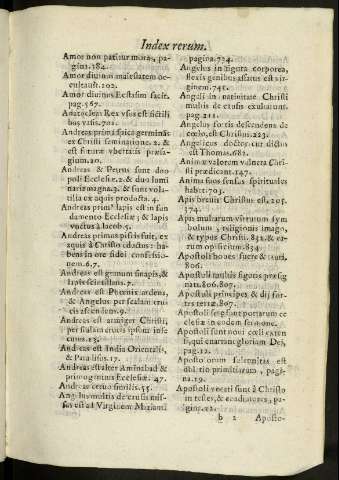 Index rerum.
Amor non patitur moras, pa-
gina.184.
Amor diuinus maiestatem oc-
cultauit.202.
Amor diuinus Ecstasim facit.
pag.567.
Rex vsus est fictili
bus vasis.701.
Andreas prima spica germinās
ex Christi seminatione.2. &
est futuræ vbertatis præsa-
gium.20.
Andreas & Petrus sunt duo
poli Ecclesiæ.2. & duo lumi
naria magna.3. & sunt vola-
tilia ex aquis producta.4.
Andreas primus lapis est in fun
damento Ecclesiæ, & lapis
vnctus à Iacob.5.
Andreas primus piscis fuit, ex
aquis à Christo eductus: ha-
bens in ore fidei confessio-
nem.6.7.
Andreas est granum sinapis, &
lapis scintillans.7.
Andreas est Phœnix ardens,
& Angelus per scalam cru
cis ascendens.9.
Andreas est armiger Christi,
per scalam crucis ipsum
cum.13.
Andreas est India Orientalis,
& Paradisus.17.
Andreas est alter Aminabad &
primogenitus Ecclesiæ.47.
Andreas ceruo similis.55.
Angelus multis de causis mis-
sus est ad Virginem Mariam
pagina.724.
Angelus in figura corporea,
flexis genibus affatus est vir-
ginem.741.
Angeli in natiuitate Christi
multis de causis exultarunt.
pag.211.
Angelus fortis descendens de
cœlo, est Christus.223.
Angelicus doctor cur dictus
est Thomas.682.
Animæ valorem vulnera Chri-
sti prædicant.147.
Anima suos sensus spirituales
habet.703.
Apis breuis Christus est.205.
574.
Apis multarum virtutum sym
bolum, religionis imago,
& typus Christi.832. & ea-
rum opificium.834.
Apostoli boues fuere & tauri,
806.
Apostoli multis figuris præsig
nati.806.807.
Apostoli principes & dij for-
tes terræ.807.
Apostoli fere sunt portarum ec
clesiæ in eodem sermone.
Apostoli sunt noui cœli exten
ti, qui enarrant gloriam Dei,
pag.12.
Apostolorum solemnitas est
oblatio primitiarum, pagi-
na.19.
Apostoli vocati sunt à Christo
in testes, & creditores, pa-
gina.21.
b 2 Aposto-